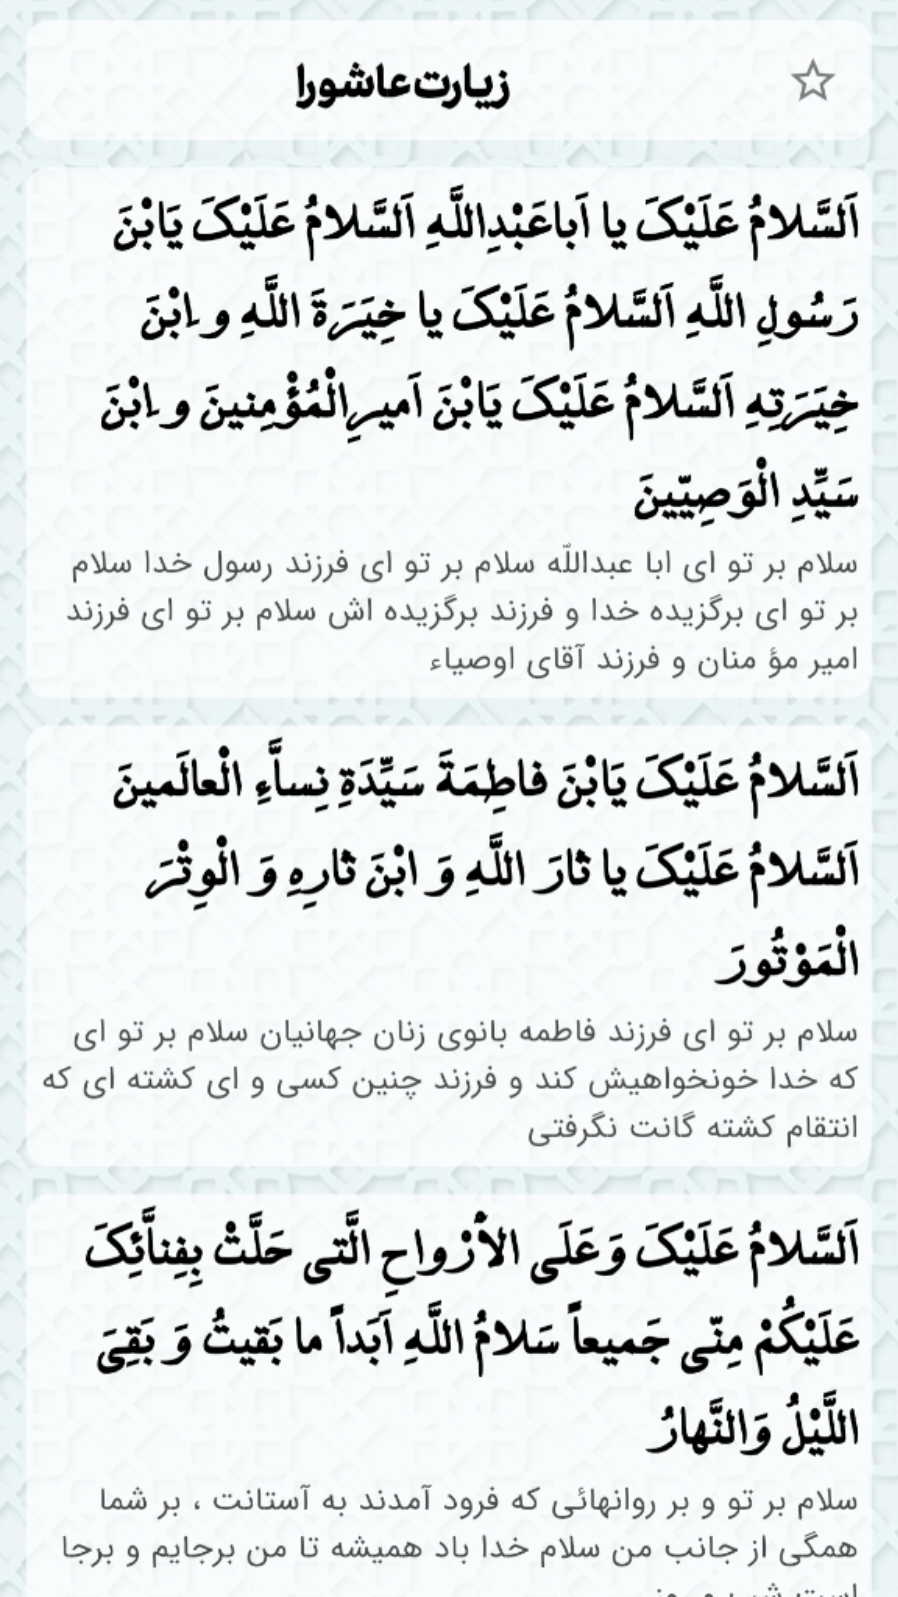 زیارت‌عاشورا
اَلسَّلامُ عَلَیْکَ یا اَباعَبْدِاللَّهِ اَلسَّلامُ عَلَیْکَ یَابْنَ
رَسُولِ اللَّهِ اَلسَّلامُ عَلَیْکَ یا خِیَرَةَ اللَّهِ و ابْنَ
خِیَرَتِهِ اَلسَّلامُ عَلَیْکَ یَابْنَ اَمیرِالْمُؤْمِنینَ و ابْنَ
سَیِّدِ الْوَصِیّینَ
سلام بر تو ای ابا عبداللّه سلام بر تو ای فرزند رسول خدا سلام
بر تو ای برگزیده خدا و فرزند برگزیده اش سلام بر تو ای فرزند
امیر مؤ منان و فرزند آقای اوصیاء
اَلسَّلامُ عَلَیْکَ یَابْنَ فاطِمَةَ سَیِّدَةِ نِساَّءِ الْعالَمینَ
اَلسَّلامُ عَلَیْکَ یا ثارَ اللَّهِ وَ ابْنَ ثارِهِ وَ الْوِتْرَ
الْمَوْتُورَ
سلام بر تو ای فرزند فاطمه بانوی زنان جهانیان سلام بر تو ای
که خدا خونخواهیش کند و فرزند چنین کسی و ای کشته ای که
انتقام کشته گانت نگرفتی
اَلسَّلامُ عَلَیْکَ وَعَلَی الاَْرْواحِ الَّتی حَلَّتْ بِفِناَّئِکَ
عَلَیْکُمْ مِنّی جَمیعاً سَلامُ اللَّهِ اَبَداً ما بَقیتُ وَ بَقِیَ
اللَّیْلُ وَالنَّهارُ
سلام بر تو و بر روانهائی که فرود آمدند به آستانت ، بر شما
همگی از جانب من سلام خدا باد همیشه تا من برجایم و برجا